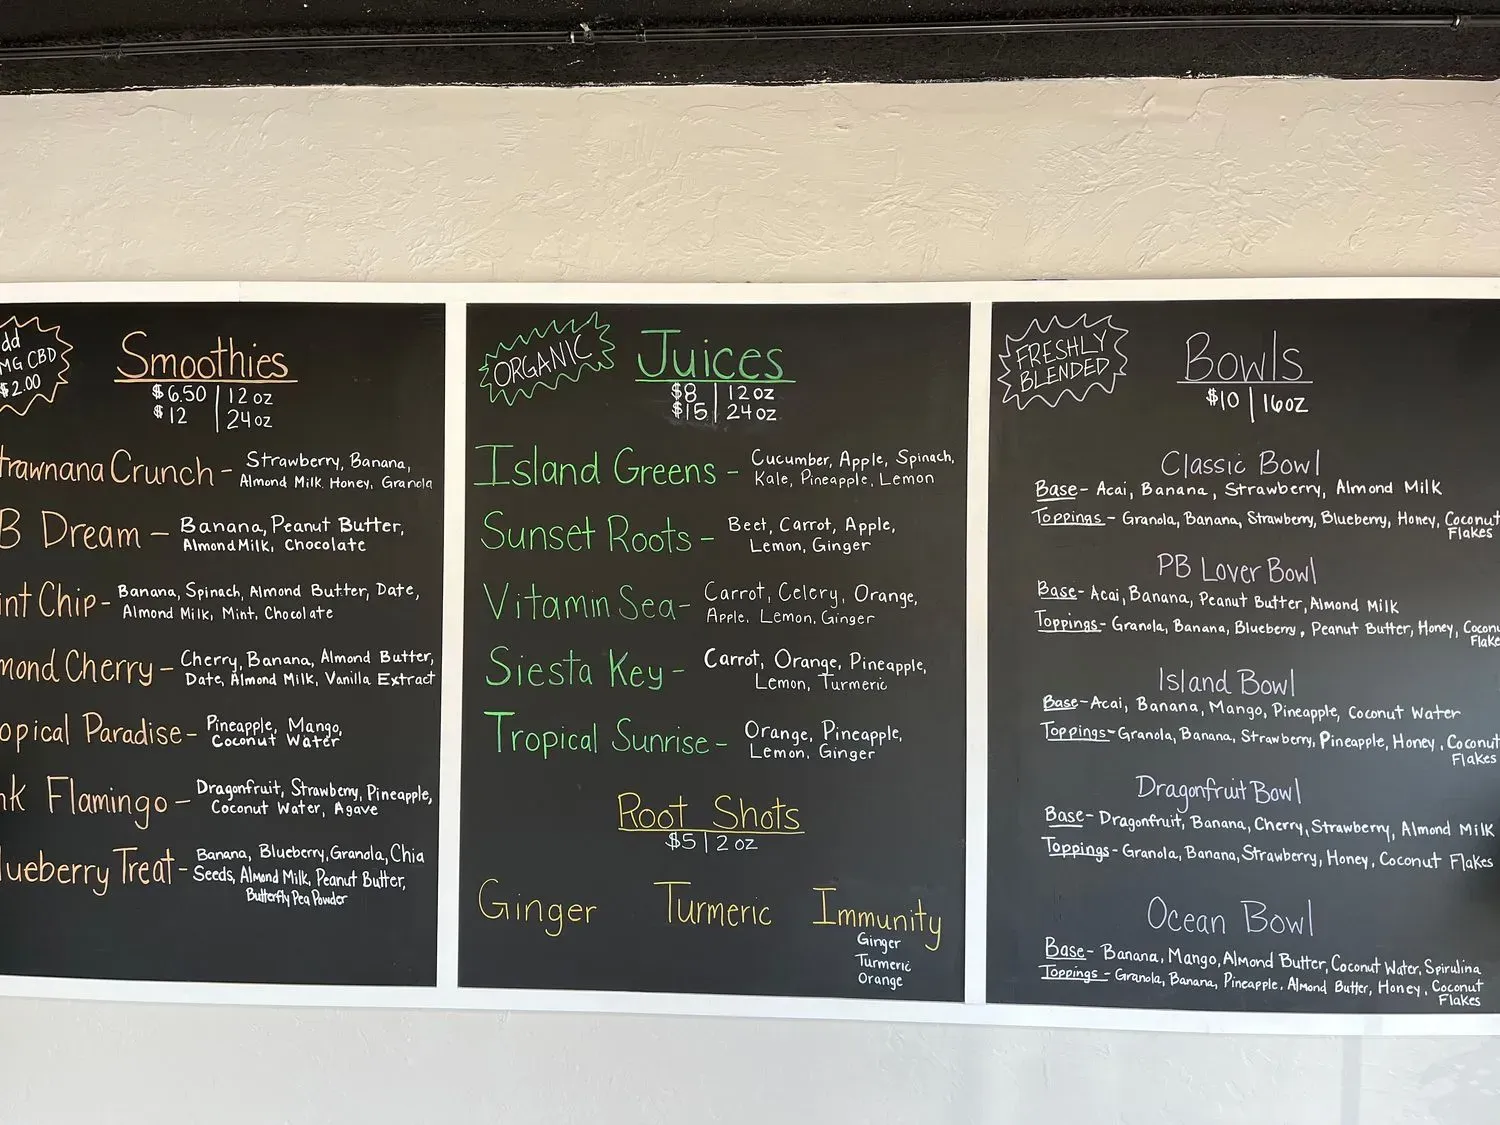 dd
MG CBD
$2.00
Smoothies
$6.50 | 12 oz
$12 | 24 oz
trawnana Crunch - Strawberry, Banana,
Almond Milk, Honey, Granola
B Dream - Banana, Peanut Butter,
Almond Milk, Chocolate
int Chip - Banana, Spinach, Almond Butter, Date,
Almond Milk, Mint, Chocolate
mond Cherry - Cherry, Banana, Almond Butter,
Date, Almond Milk, Vanilla Extract
opical Paradise - Pineapple, Mango,
Coconut Water
nk Flamingo - Dragonfruit, Strawberry, Pineapple,
Coconut Water, Agave
lueberry Treat - Banana, Blueberry, Granola, Chia
Seeds, Almond Milk, Peanut Butter,
Butterfly Pea Powder
ORGANIC
Juices
$8 | 12 oz
$15 | 24 oz
Island Greens - Cucumber, Apple, Spinach,
Kale, Pineapple, Lemon
Sunset Roots - Beet, Carrot, Apple,
Lemon, Ginger
Vitamin Sea - Carrot, Celery, Orange,
Apple, Lemon, Ginger
Siesta Key - Carrot, Orange, Pineapple,
Lemon, Turmeric
Tropical Sunrise - Orange, Pineapple,
Lemon, Ginger
Root Shots
$5 | 2 oz
Ginger Turmeric Immunity
Ginger
Turmeric
Orange
FRESHLY
BLENDED
Bowls
$10 | 16 oz
Classic Bowl
Base - Acai, Banana, Strawberry, Almond Milk
Toppings - Granola, Banana, Strawberry, Blueberry, Honey, Coconut
Flakes
PB Lover Bowl
Base - Acai, Banana, Peanut Butter, Almond Milk
Toppings - Granola, Banana, Blueberry, Peanut Butter, Honey, Coconu
Flake
Island Bowl
Base - Acai, Banana, Mango, Pineapple, Coconut Water
Toppings - Granola, Banana, Strawberry, Pineapple, Honey, Coconut
Flakes
Dragonfruit Bowl
Base - Dragonfruit, Banana, Cherry, Strawberry, Almond Milk
Toppings - Granola, Banana, Strawberry, Honey, Coconut Flakes
Ocean Bowl
Base - Banana, Mango, Almond Butter, Coconut Water, Spirulina
Toppings - Granola, Banana, Pineapple, Almond Butter, Honey, Coconut
Flakes